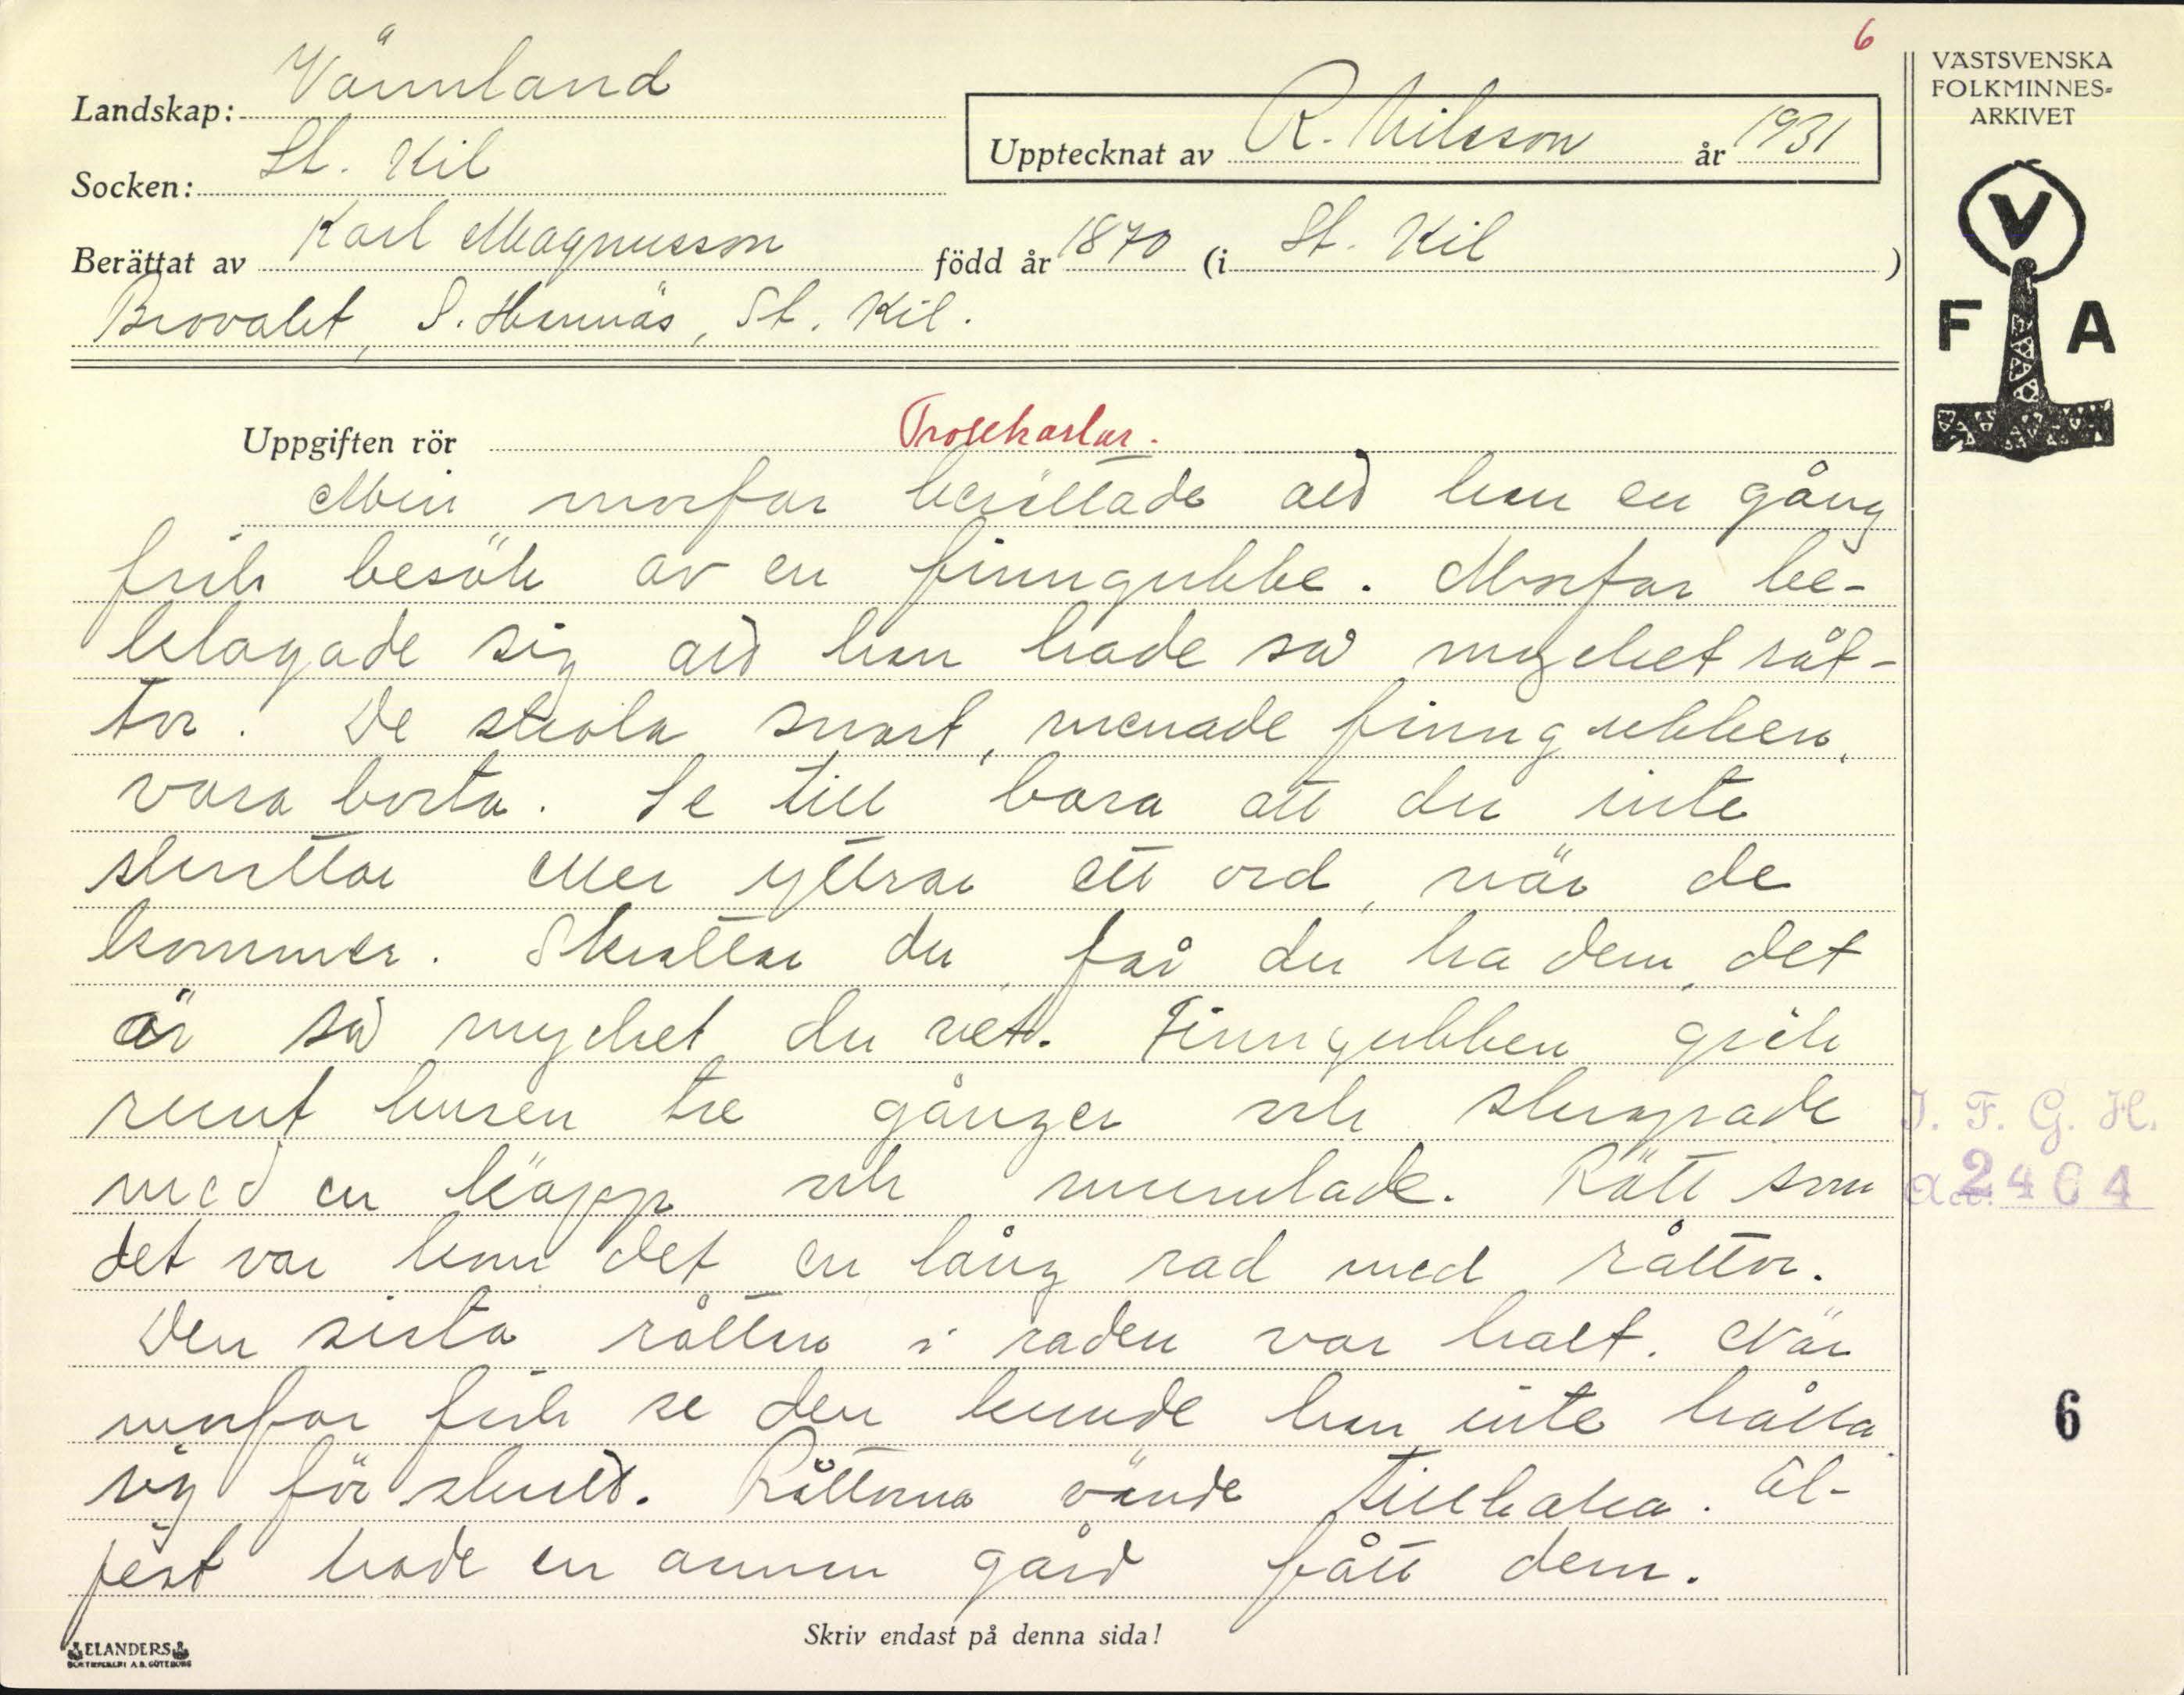 6
VÄSTSVENSKA
FOLKMINNES-
ARKIVET
Landskap: Värmland
Upptecknat av R. Nilsson år 1931
Socken: St. Kil
Berättat av Karl Magnusson född år 1870 (i St. Kil)
Brovalet, S. Hannäs, St. Kil.
V
F A
Uppgiften rör Trollkarlar.
Min morfar berättade att han en gång
fick besök av en finngubbe. Morfar be-
klagade sig att han hade så mycket råt-
tor. De skola snart, menade finngubben,
vara borta. Se till bara att du inte
skrattar eller yttrar ett ord, när de
kommer. Skrattar du, får du ha dem, det
är så mycket du vet. Finngubben gick
runt husen tre gånger och skrapade
med en käpp och mumlade. Rätt som
det var kom det en lång rad med råttor.
Den sista råttan i raden var halt. När
morfar fick se den kunde han inte hålla
sig för skratt. Råttorna vände tillbaka. Al-
jest hade en annan gård fått dem.
I. F. G. H.
Acc. 2464
6
Skriv endast på denna sida!
ELANDERS
BOKTRYCKERI A.B. GÖTEBORG